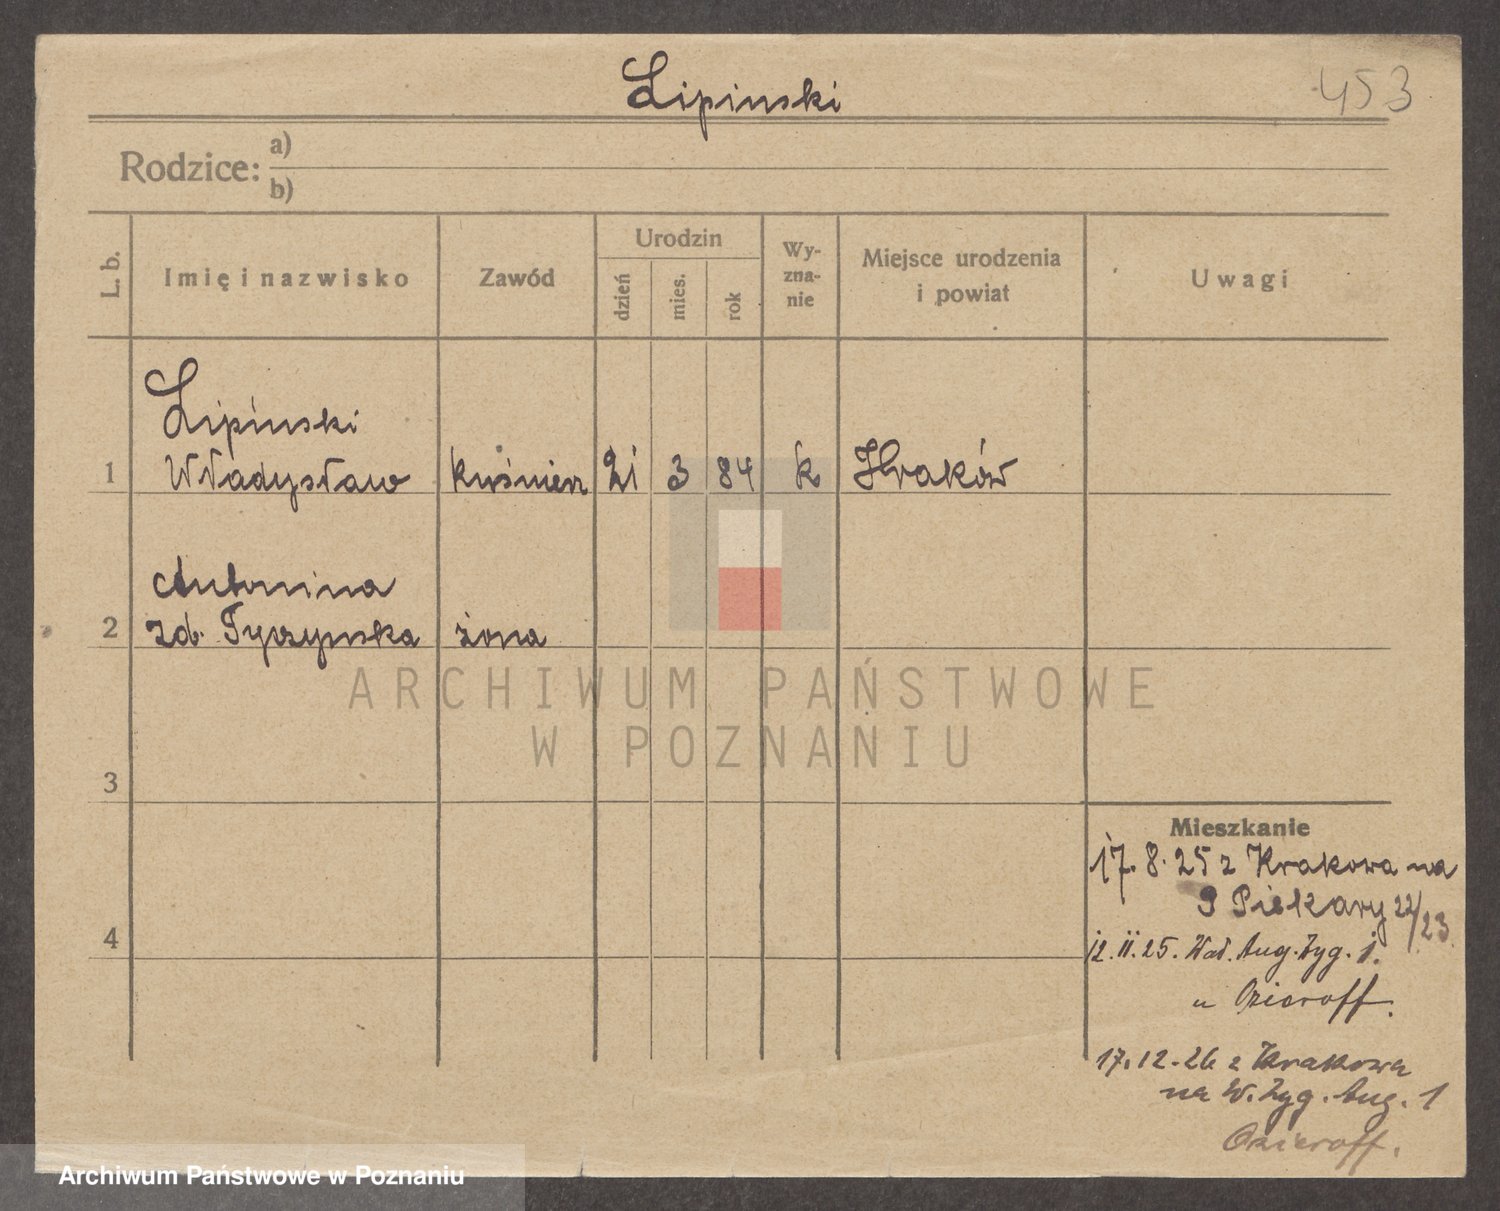 Lipinski
453
Rodzice: a)
b)
L. b.
Imię i nazwisko
Zawód
Urodzin
dzień
mies.
rok
Wy-
zna-
nie
Miejsce urodzenia
i powiat
Uwagi
Lipinski
1 Władysław kuśnierz 21 3 84 k Kraków
Antonina
2 zd. Tyczynska żona
ARCHIWUM PAŃSTWOWE
W POZNANIU
3
Mieszkanie
17. 8. 25 z Krakowa na
Piekary 22/23
4
12. 11. 25. Wał. Aug. Zyg. 1.
u Ozieroff.
17. 12. 26 z Krakowa
na W. Zyg. Aug. 1
Ozieroff.
Archiwum Państwowe w Poznaniu